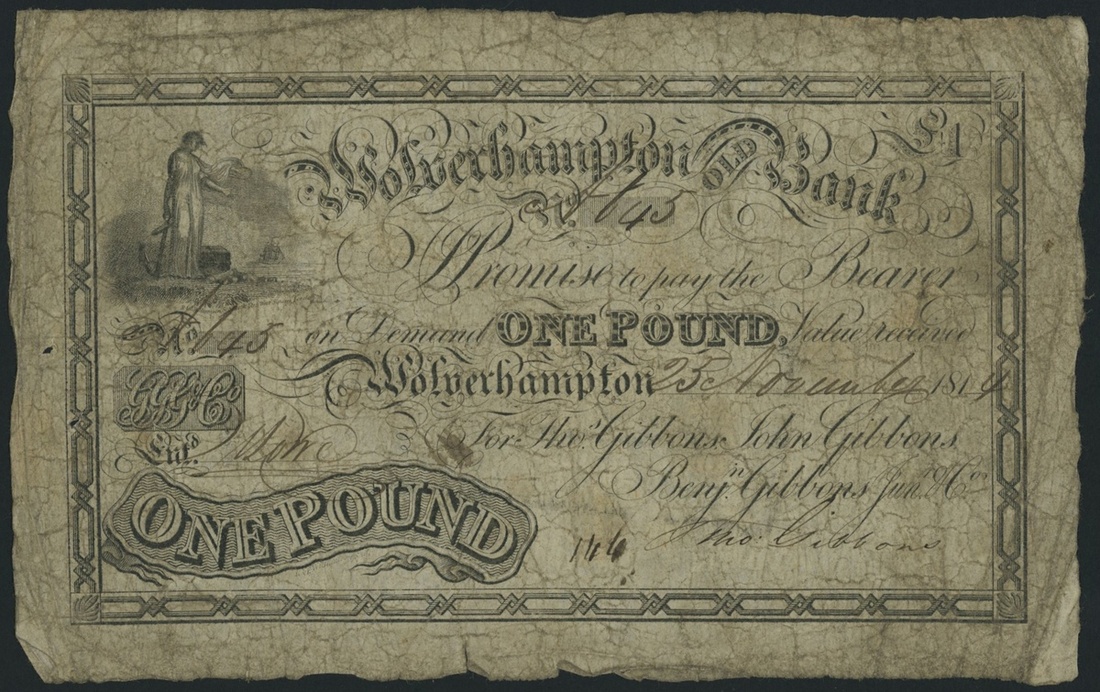 Wolverhampton OLD Bank £1
No. 645
I Promise to pay the Bearer
No. 645 on Demand ONE POUND, Value received
Wolverhampton 25 November 1814
Ent.d
For Tho.s Gibbons John Gibbons
Benj.n Gibbons Jun.r & Co.
ONE POUND
146 Tho: Gibbons